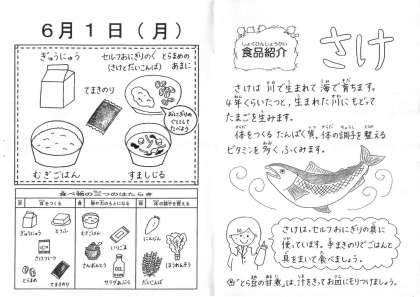 6月1日(月)
ぎゅうにゅう
セルフおにぎりのぐ
(さけとだいこんば)
とらまめの
あまに
てまきのり
おにぎりの
ぐとして
たべよう
むぎごはん
すましじる
食べ物の三つのはたらき
体をつくる
熱や力のもとになる
体の調子を整える
ぎゅうにゅう
とうふ
さけフレーク
とらまめ
てまきのり
むぎごはん
いりごま
さんおんとう
サラダあぶら
にんじん
ほうれんそう
だいこんば
しょくひんしょうかい
食品紹介
さけ
さけは 川で生まれて 海で育ちます。
4年くらいたつと、生まれた川にもどって
たまごを生みます。
体をつくる たんぱく質、体の調子を 整える
ビタミンを 多く ふくみます。
さけは、セルフおにぎりの具に
使っています。手まきのりでごはんと
具をまいて食べましょう。
「とら豆の甘煮」は、汁をきってお皿にもりつけましょう。